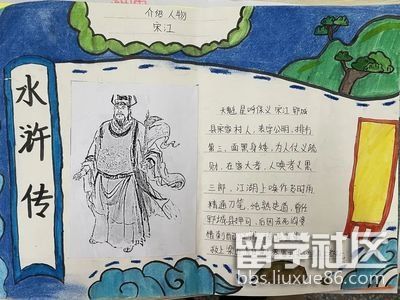 介绍人物
宋江
水浒传
天魁星呼保义宋江 郓城
县宋家村人,表字公明,排行
第三,面黑身矮,为人仗义疏
财,在家大孝,人唤孝义黑
三郎,江湖上唤作及时雨
精通刀笔,纯熟吏道,曾任
郓城县押司,后因
留学社区
bbs.liuxue86.com